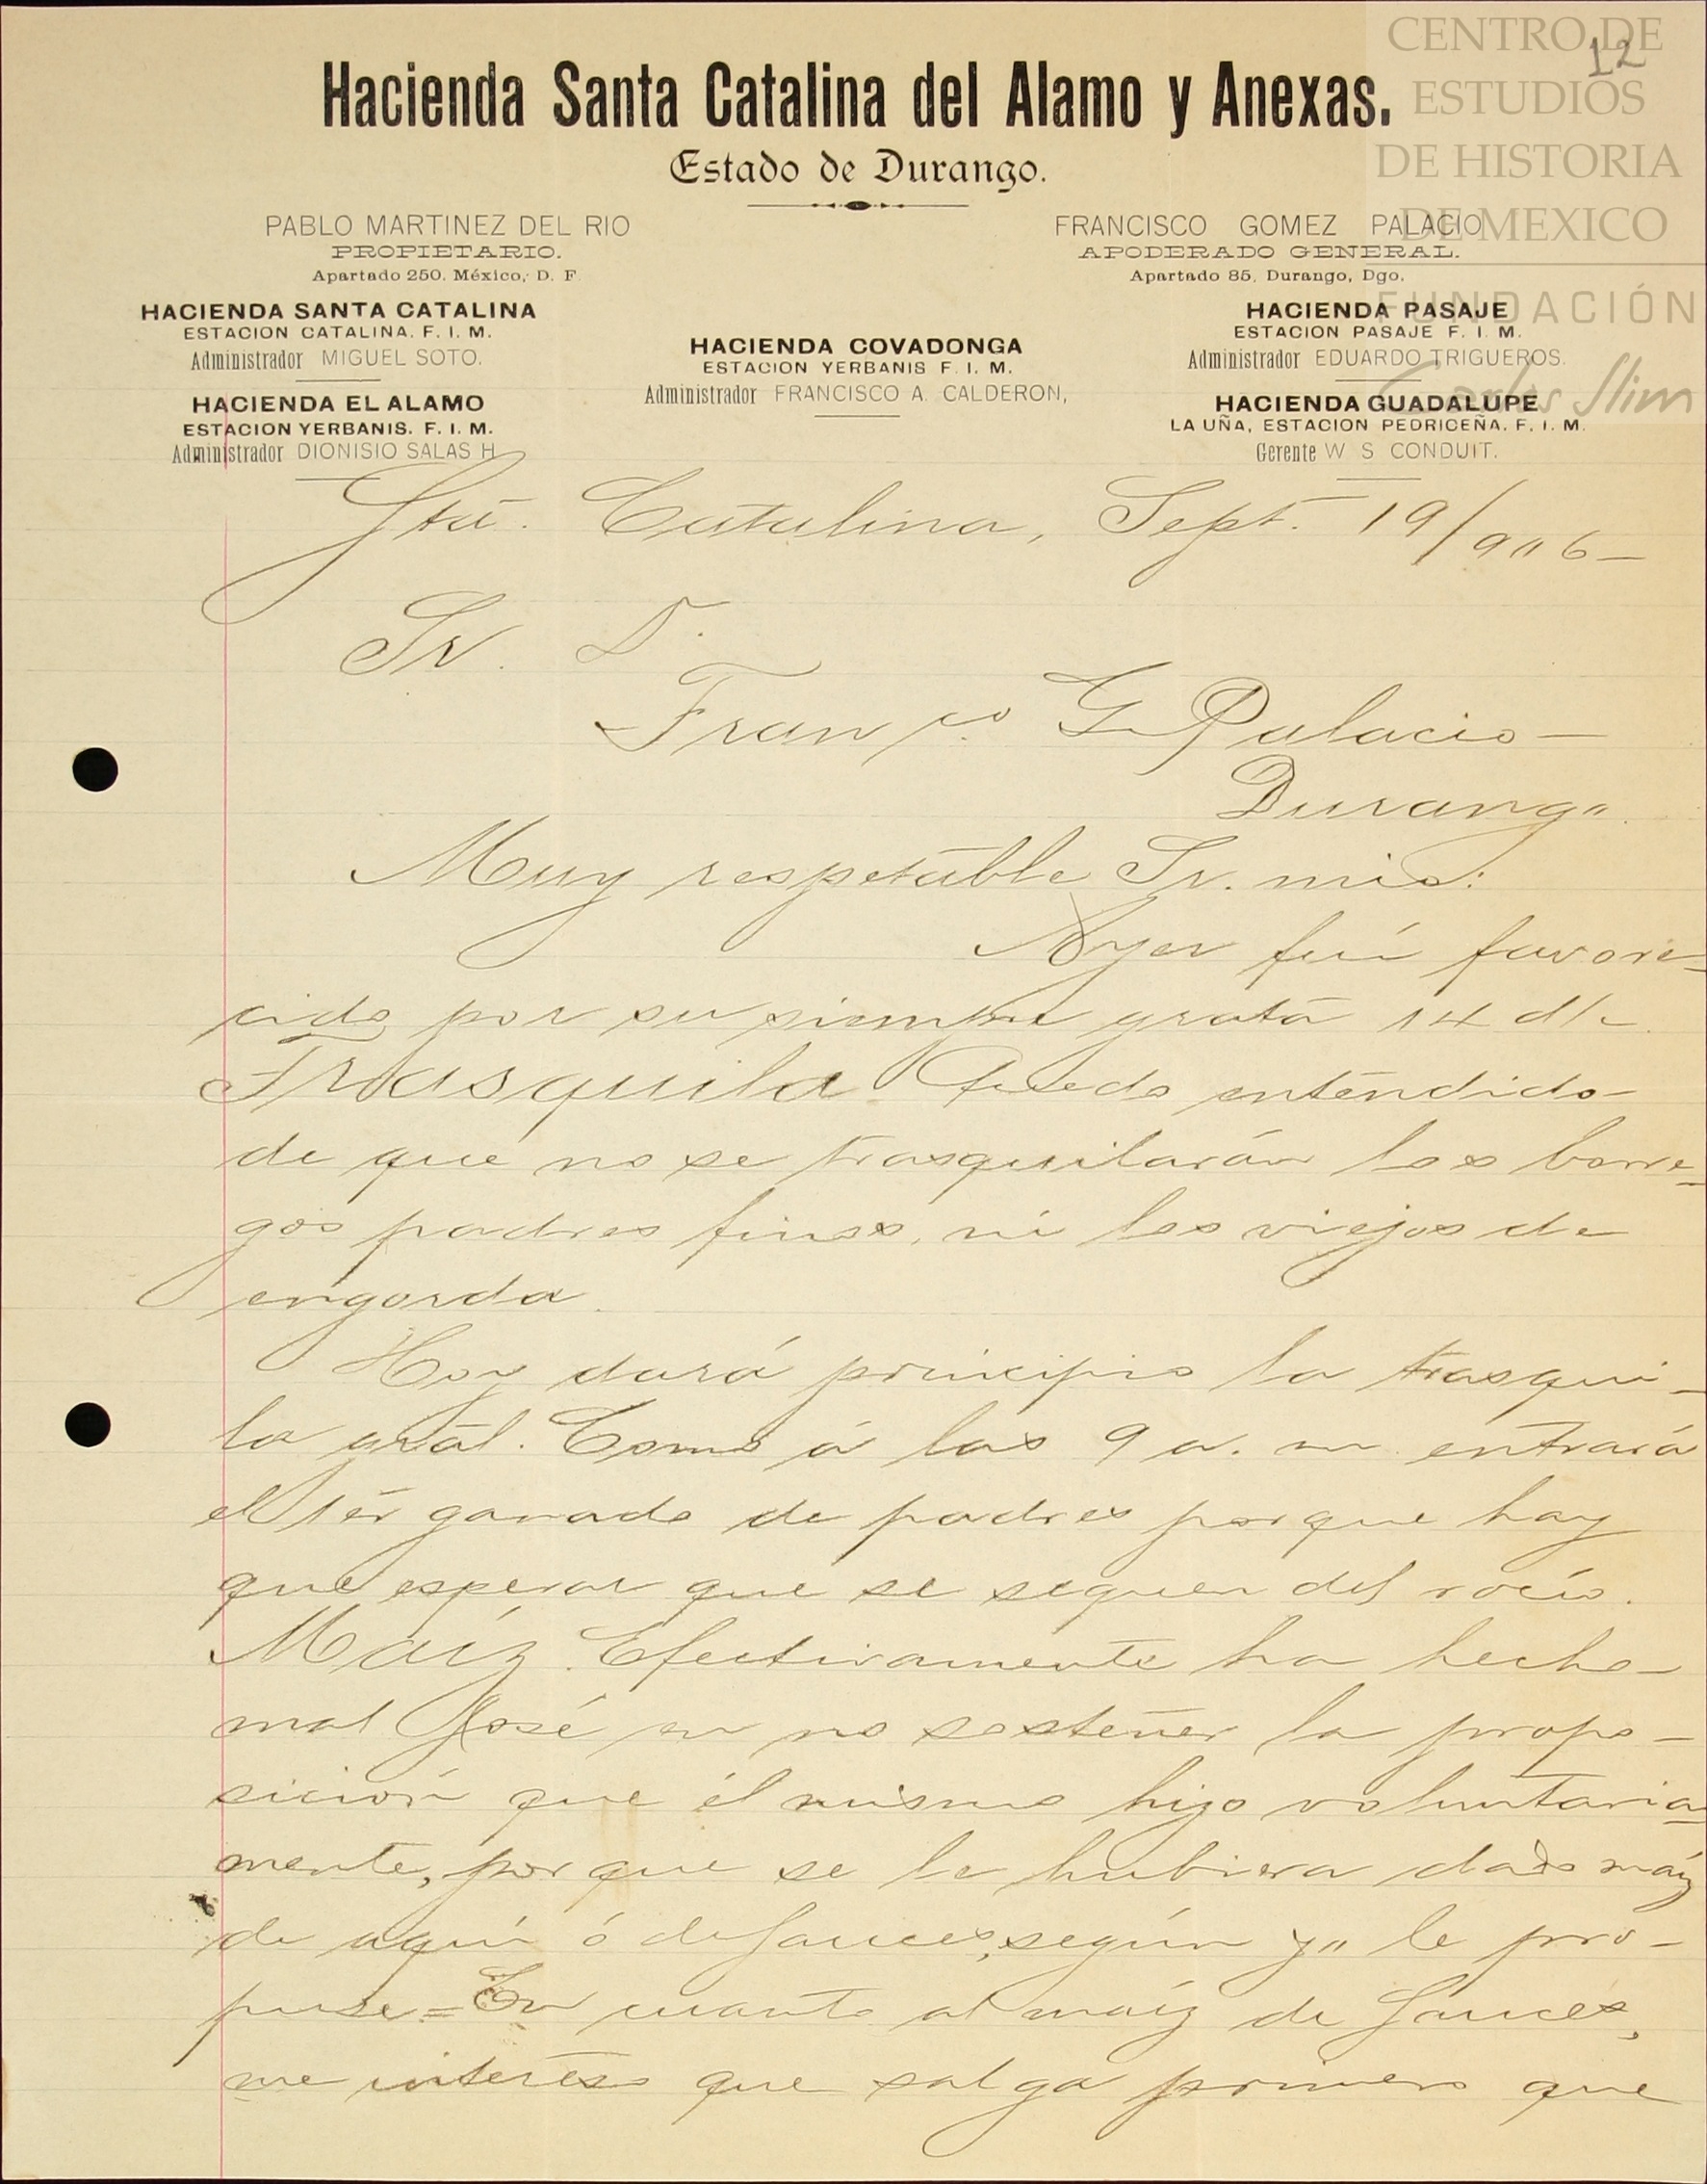 CENTRO DE
ESTUDIOS
DE HISTORIA
DE MEXICO
FUNDACIÓN
Carlos Slim
12
Hacienda Santa Catalina del Alamo y Anexas.
Estado de Durango.
PABLO MARTINEZ DEL RIO
PROPIETARIO.
Apartado 250. México, D. F.
FRANCISCO GOMEZ PALACIO
APODERADO GENERAL.
Apartado 85, Durango, Dgo.
HACIENDA SANTA CATALINA
ESTACION CATALINA. F. I. M.
Administrador MIGUEL SOTO.
HACIENDA EL ALAMO
ESTACION YERBANIS. F. I. M.
Administrador DIONISIO SALAS H
HACIENDA COVADONGA
ESTACION YERBANIS F. I. M.
Administrador FRANCISCO A. CALDERON,
HACIENDA PASAJE
ESTACION PASAJE F. I. M.
Administrador EDUARDO TRIGUEROS.
HACIENDA GUADALUPE
LA UÑA, ESTACION PEDRICEÑA. F. I. M.
Gerente W S CONDUIT.
Sta. Catalina, Sept. 19/906-
Sr. D.
Franco. G. Palacio-
Durango.
Muy respetable Sr. mio:
Ayer fuí favore-
cido por su siempre grata 14 d/c.
Trasquila Quedo entendido
de que no se trasquilarán los borre-
gos padres finos, ni los viejos de
engorda.
Hoy dará principio la trasqui-
la gral. Como á las 9 a. m. entrará
el 1er ganado de padres porque hay
que esperar que se sequen del rocío.
Maíz. Efectivamente ha hecho
mal José en no sostener la propo-
sición que él mismo hizo voluntaria-
mente, porque se le hubiera dado máiz
de aquí ó de Sauces, según yo le pro-
puse = En cuanto al maíz de Sauces,
me intereso que salga primero que